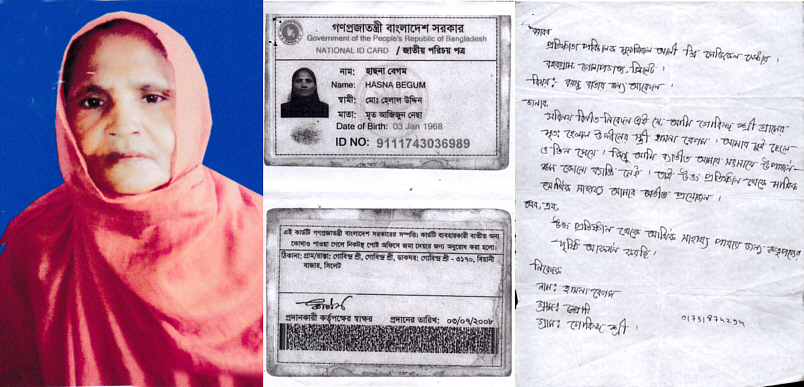 গণপ্রজাতন্ত্রী বাংলাদেশ সরকার
Government of the People's Republic of Bangladesh
NATIONAL ID CARD / জাতীয় পরিচয় পত্র
নাম: হাছনা বেগম
Name: HASNA BEGUM
স্বামী: মোঃ হেলাল উদ্দিন
মাতা: মৃত আজিজুন নেছা
Date of Birth: 03 Jan 1968
ID NO: 9111743036989
এই কার্ডটি গণপ্রজাতন্ত্রী বাংলাদেশ সরকারের সম্পত্তি। কার্ডটি ব্যবহারকারী ব্যতীত অন্য
কোথাও পাওয়া গেলে নিকটস্থ পোষ্ট অফিসে জমা দেয়ার জন্য অনুরোধ করা হলো।
ঠিকানা: গ্রাম/রাস্তা: গোবিন্দ শ্রী, গোবিন্দ শ্রী, ডাকঘর: গোবিন্দ শ্রী - ৩১৭০, বিয়ানী
বাজার, সিলেট
প্রদানকারী কর্তৃপক্ষের স্বাক্ষর প্রদানের তারিখ: ০৩/০৭/২০০৮
বরাবর
প্রতিষ্ঠাতা পরিচালক আলী ফ্রি মেডিকেল সেন্টার।
সিলেট।
বিষয়: বয়স্ক ভাতার জন্য আবেদন।
জনাব,
সবিনয় বিনীত নিবেদন এই যে আমি গোবিন্দ শ্রী গ্রামের
মৃত হেলাল উদ্দীনের স্ত্রী হাসনা বেগম। আমার দুই ছেলে
ও তিন মেয়ে। কিন্তু আমি ব্যতীত আমার সংসারে উপার্জন-
কোনো ব্যক্তি নেই। তাই উক্ত প্রতিষ্ঠান থেকে মাসিক
আর্থিক সাহায্য আমার অতীব প্রয়োজন।
অত, এব,
উক্ত প্রতিষ্ঠান থেকে আর্থিক সাহায্য পাবার জন্য কর্তৃপক্ষের
দৃষ্টি আকর্ষণ করছি।
নিবেদক
নাম: হাসনা বেগম
গ্রাম: গোবিন্দ শ্রী।
01731874294